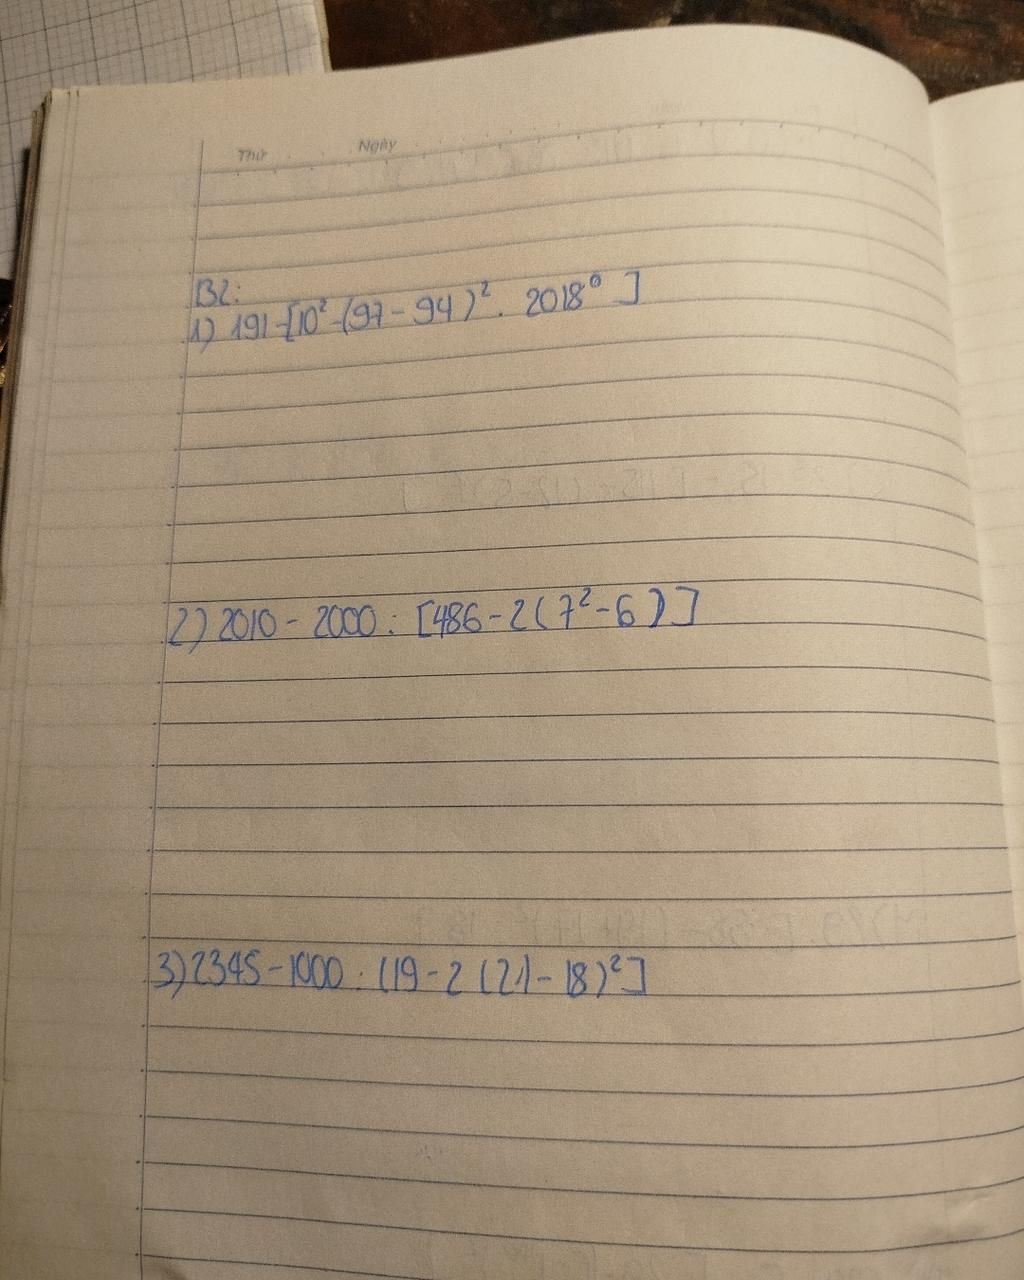 Thứ Ngày
B2:
1) 191-[10²-(97-94)². 2018⁰]
2) 2010 - 2000 : [486-2(7²-6)]
3) 2345-1000 : (19-2(21-18)²]